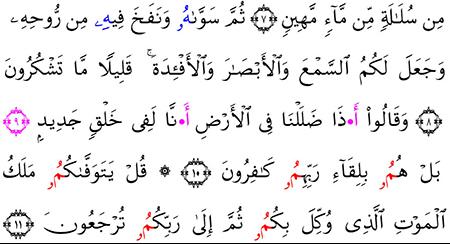 مِن سُلَٰلَةٖ مِّن مَّآءٖ مَّهِينٖ ۝٧ ثُمَّ سَوَّىٰهُۥ وَنَفَخَ فِيهِۦ مِن رُّوحِهِۦ
وَجَعَلَ لَكُمُ ٱلسَّمْعَ وَٱلْأَبْصَٰرَ وَٱلْأَفْـِٔدَةَۚ قَلِيلٗا مَّا تَشْكُرُونَ
۝٨ وَقَالُوٓاْ أَ•ذَا ضَلَلْنَا فِى ٱلْأَرْضِ أَ•نَّا لَفِى خَلْقٖ جَدِيدِۭ ۝٩
بَلْ هُمُۥ بِلِقَآءِ رَبِّهِمُۥ كَٰفِرُونَ ۝١٠ ۞ قُلْ يَتَوَفَّىٰكُمُۥ مَلَكُ
ٱلْمَوْتِ ٱلَّذِى وُكِّلَ بِكُمُۥ ثُمَّ إِلَىٰ رَبِّكُمُۥ تُرْجَعُونَ ۝١١